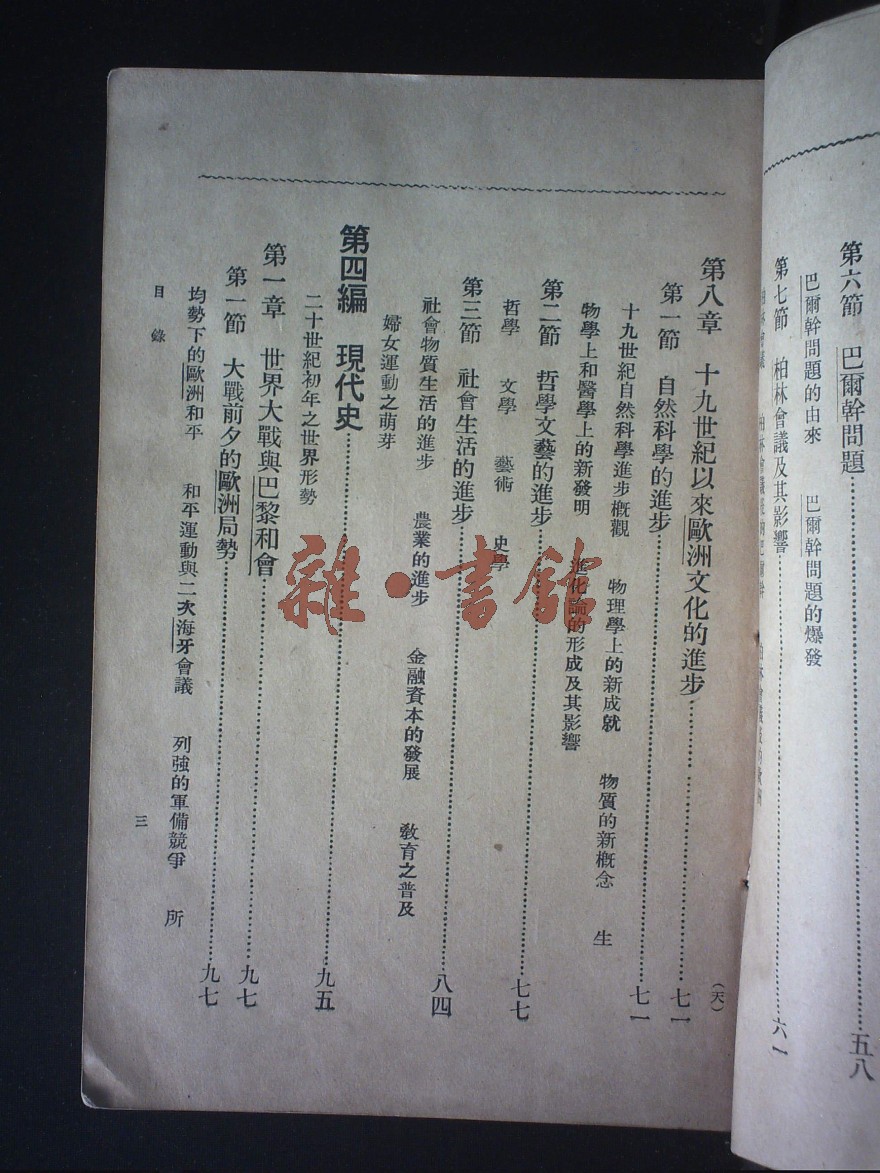 第六節 巴爾幹問題……五八
巴爾幹問題的由來 巴爾幹問題的爆發
第七節 柏林會議及其影響……六一
第八章 十九世紀以來歐洲文化的進步……七一
(天)
第一節 自然科學的進步……七一
十九世紀自然科學進步概觀 物理學上的新成就 物質的新概念 生
物學上和醫學上的新發明 進化論的形成及其影響
第二節 哲學文藝的進步……七七
哲學 文學 藝術 史學
第三節 社會生活的進步……八四
社會物質生活的進步 農業的進步 金融資本的發展 教育之普及
婦女運動之萌芽
第四編 現代史……九五
二十世紀初年之世界形勢
第一章 世界大戰與巴黎和會……九七
第一節 大戰前夕的歐洲局勢……九七
均勢下的歐洲和平 和平運動與二次海牙會議 列強的軍備競爭 所
目錄
三
雜·書館